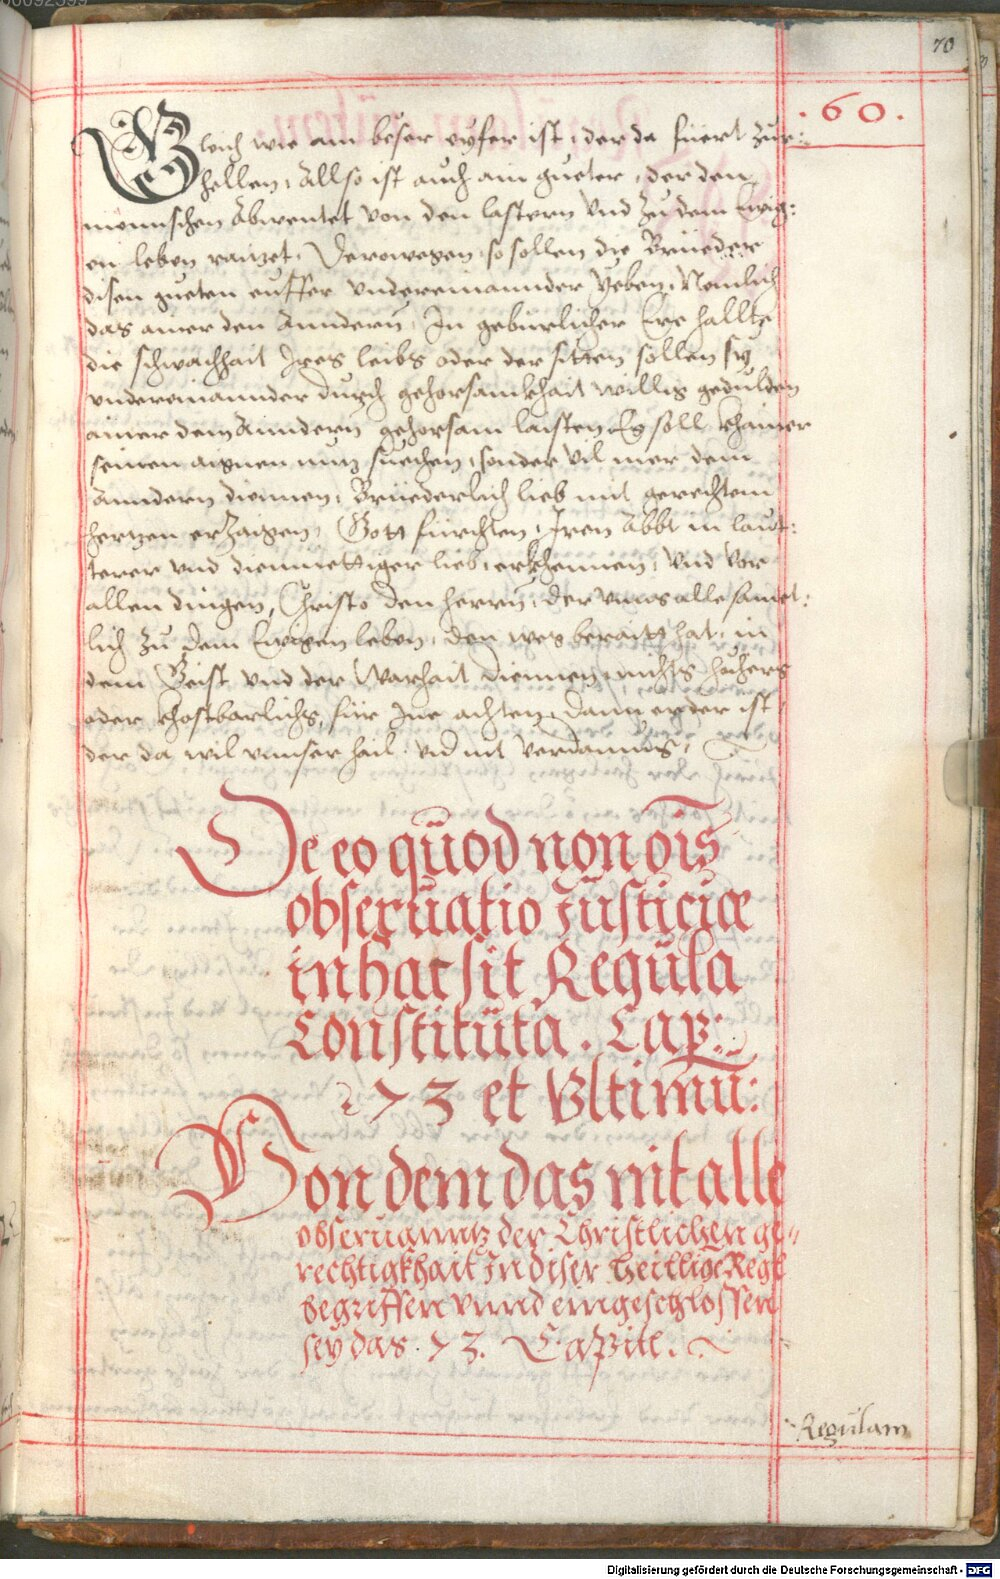 70
.60.
Gleich wie ain böser eyfer ist, der da füert zur
hellen, Allso ist auch ain gueter, der den
mennschen Abwentet von den lastern Vnd zu dem Ewig:
en leben raitzet, Derowegen, so sollen die Brüeder
disen gueten euffer Vndereinannder Yeben, Nemlich
das ainer den Anndern, In gebürlicher Ere hallte
die schwachhait Ires leibs oder der sitten sollen sy
vndereinannder durch gehorsamkhait willig gedulden
ainer dem Anndern gehorsam laisten Es soll khainer
seinen aignen nutz suechen, sonder vil mer dem
Anndern diennen, Brüederlich lieb mit gerechtem
hertzen erzaigen, Gott fürchten, Iren Abbt in laut:
terer vnd diemuettiger lieb, erkhennen, Vnd vor
allen dingen, Christo den herrn, der vnns alle samet:
lich zu dem Ewigen leben, den weg beraitt hat, in
dem Geist vnd der Warhait diennen, nichts höhers
oder khostbarlichs, für Ine achten, dann er der ist
der da wil vnnser hail vnd nit verdamnus,
De eo quod non ois
obseruatio Justiciæ
in hac sit Regula
Constituta. Cap:
73 et Vltimū:
Von dem das nit alle
obseruanntz der Christlichen ge=
rechtigkhait In diser heilligē Regl
begriffen vnnd eingeschlossen
sey das. 73. Capitl.
Regulam
Digitalisierung gefördert durch die Deutsche Forschungsgemeinschaft - DFG